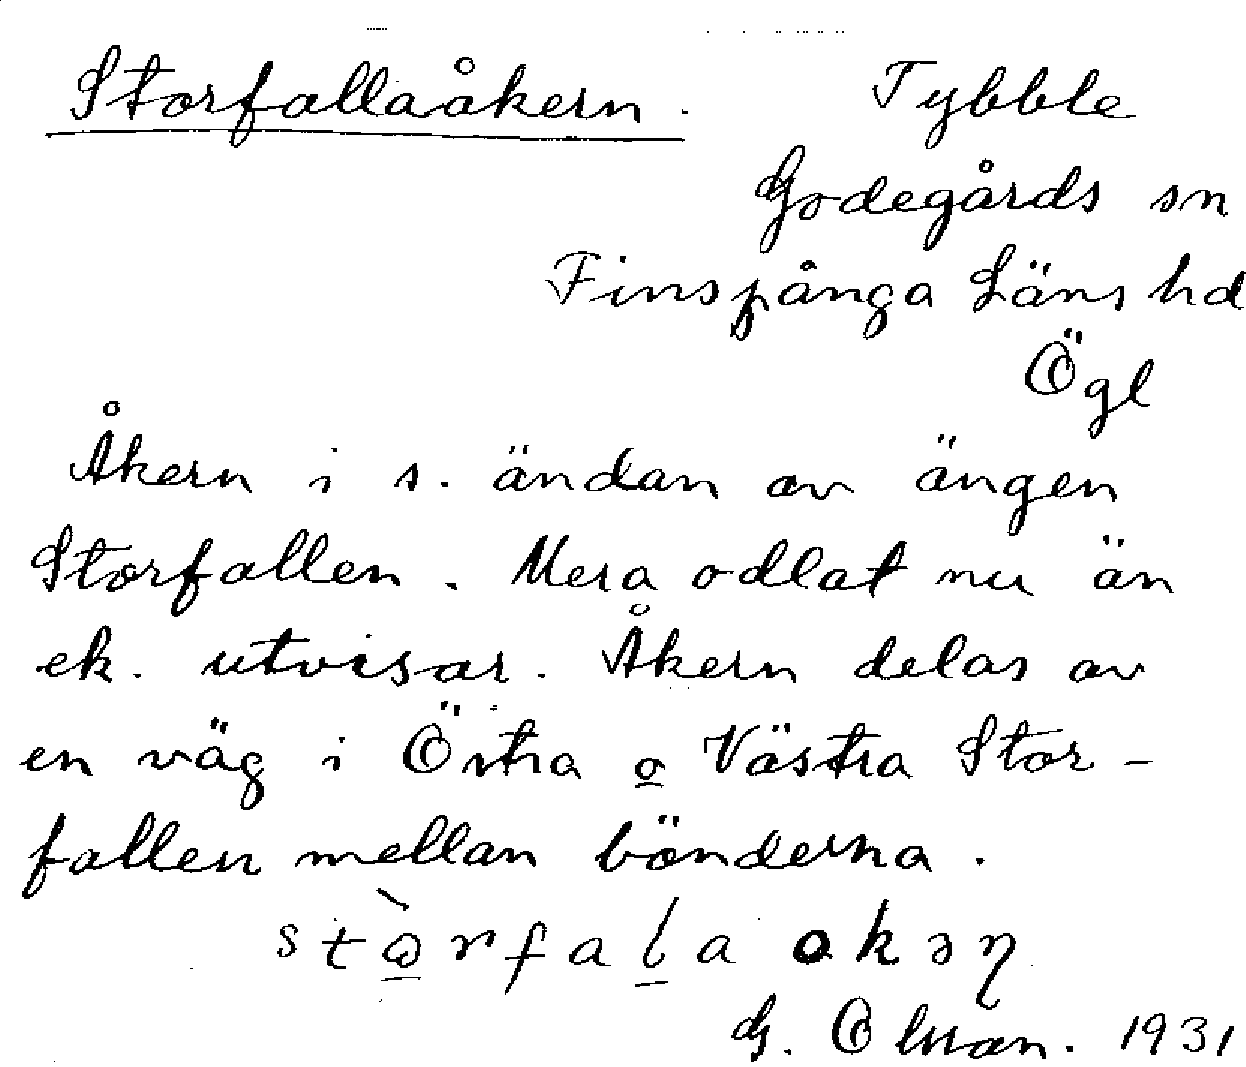 Storfallaåkern. Tybble
Godegårds sn
Finspånga Läns hd
Ögl
Åkern i s. ändan av ängen
Storfallen. Mera odlat nu än
ek. utvisar. Åkern delas av
en väg i Östra o Västra Stor-
fallen mellan bönderna.
G. Olsson. 1931